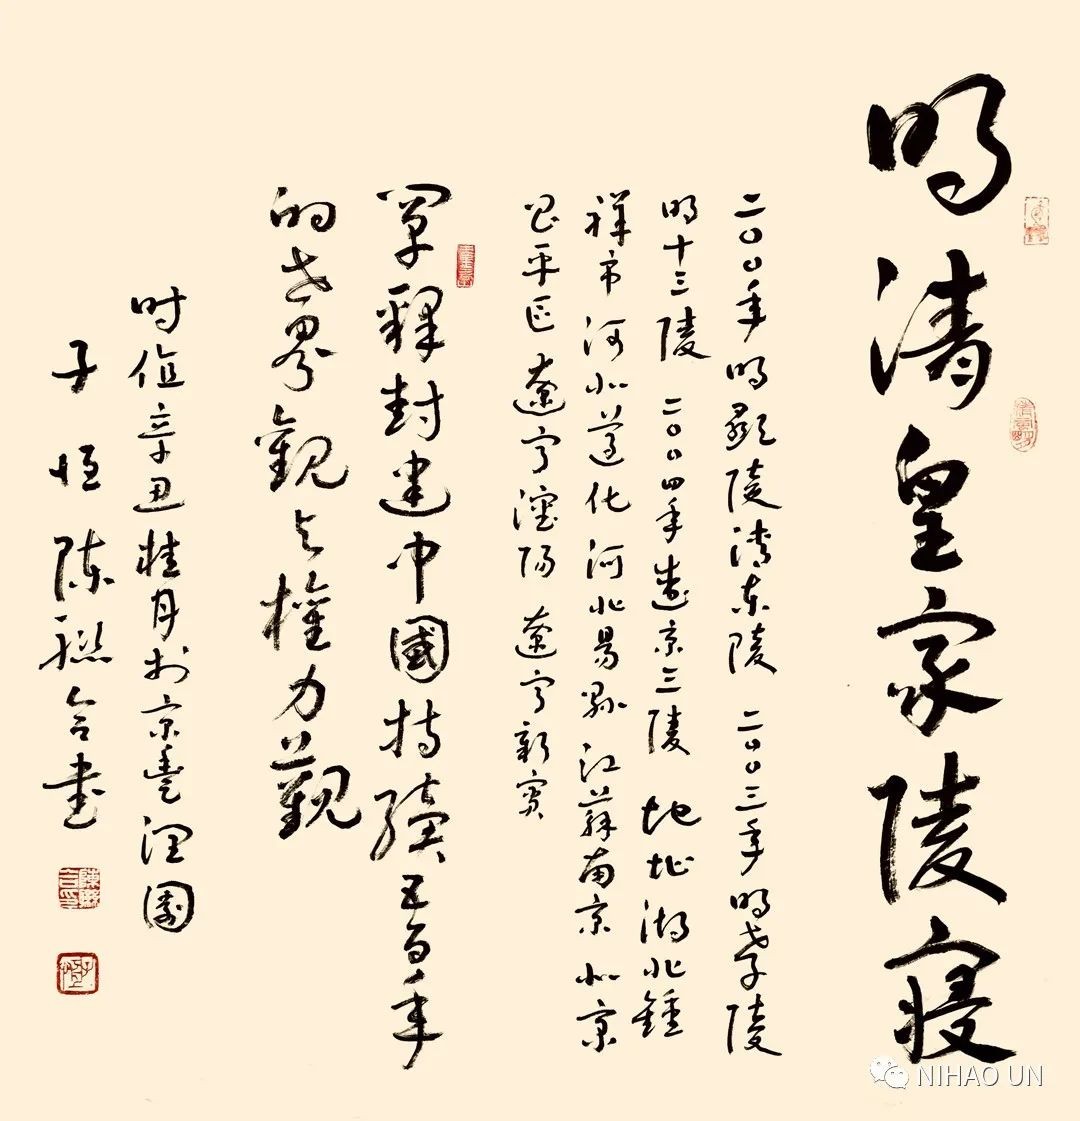 明清皇家陵寝
二〇〇〇年明显陵清东陵 二〇〇三年明孝陵
明十三陵 二〇〇四年盛京三陵 地址湖北鍾
祥市河北遵化河北易縣江蘇南京北京
昌平区遼宁瀋阳遼宁新宾
阐釋封建中國持續五百年
的世界觀与權力觀
时值辛丑桂月於京豊園
子恒陈联合书
NIHAO UN